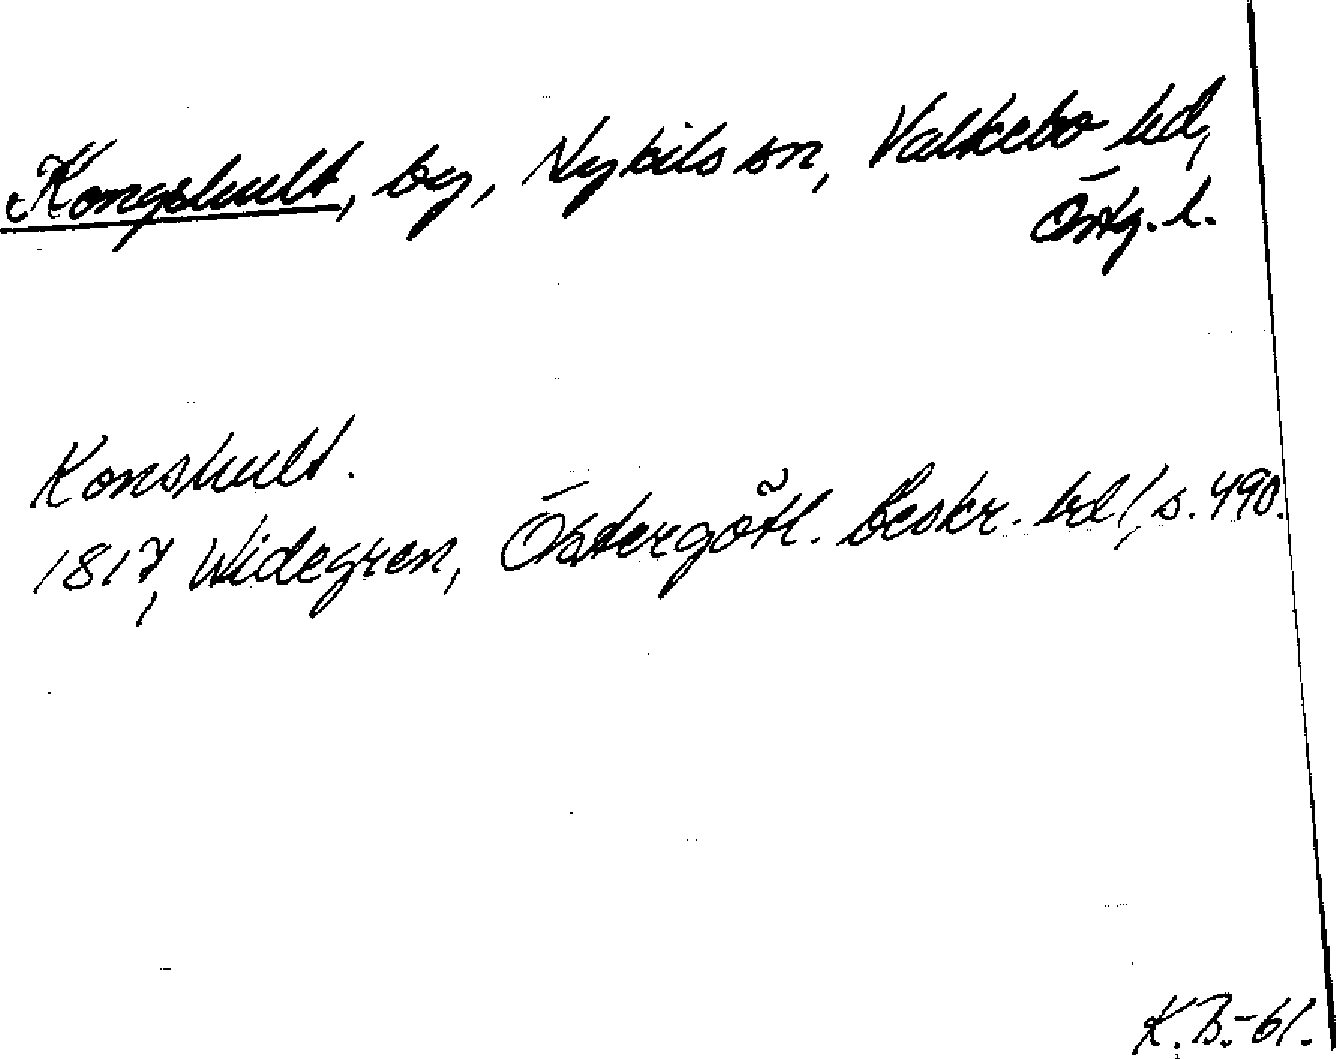 Kongshult, by, Nykils sn, Valkebo hd,
Östg. l.
Konshult.
1817, Widegren, Östergötl. beskr. bd 1, s. 490.
K.B.-61.